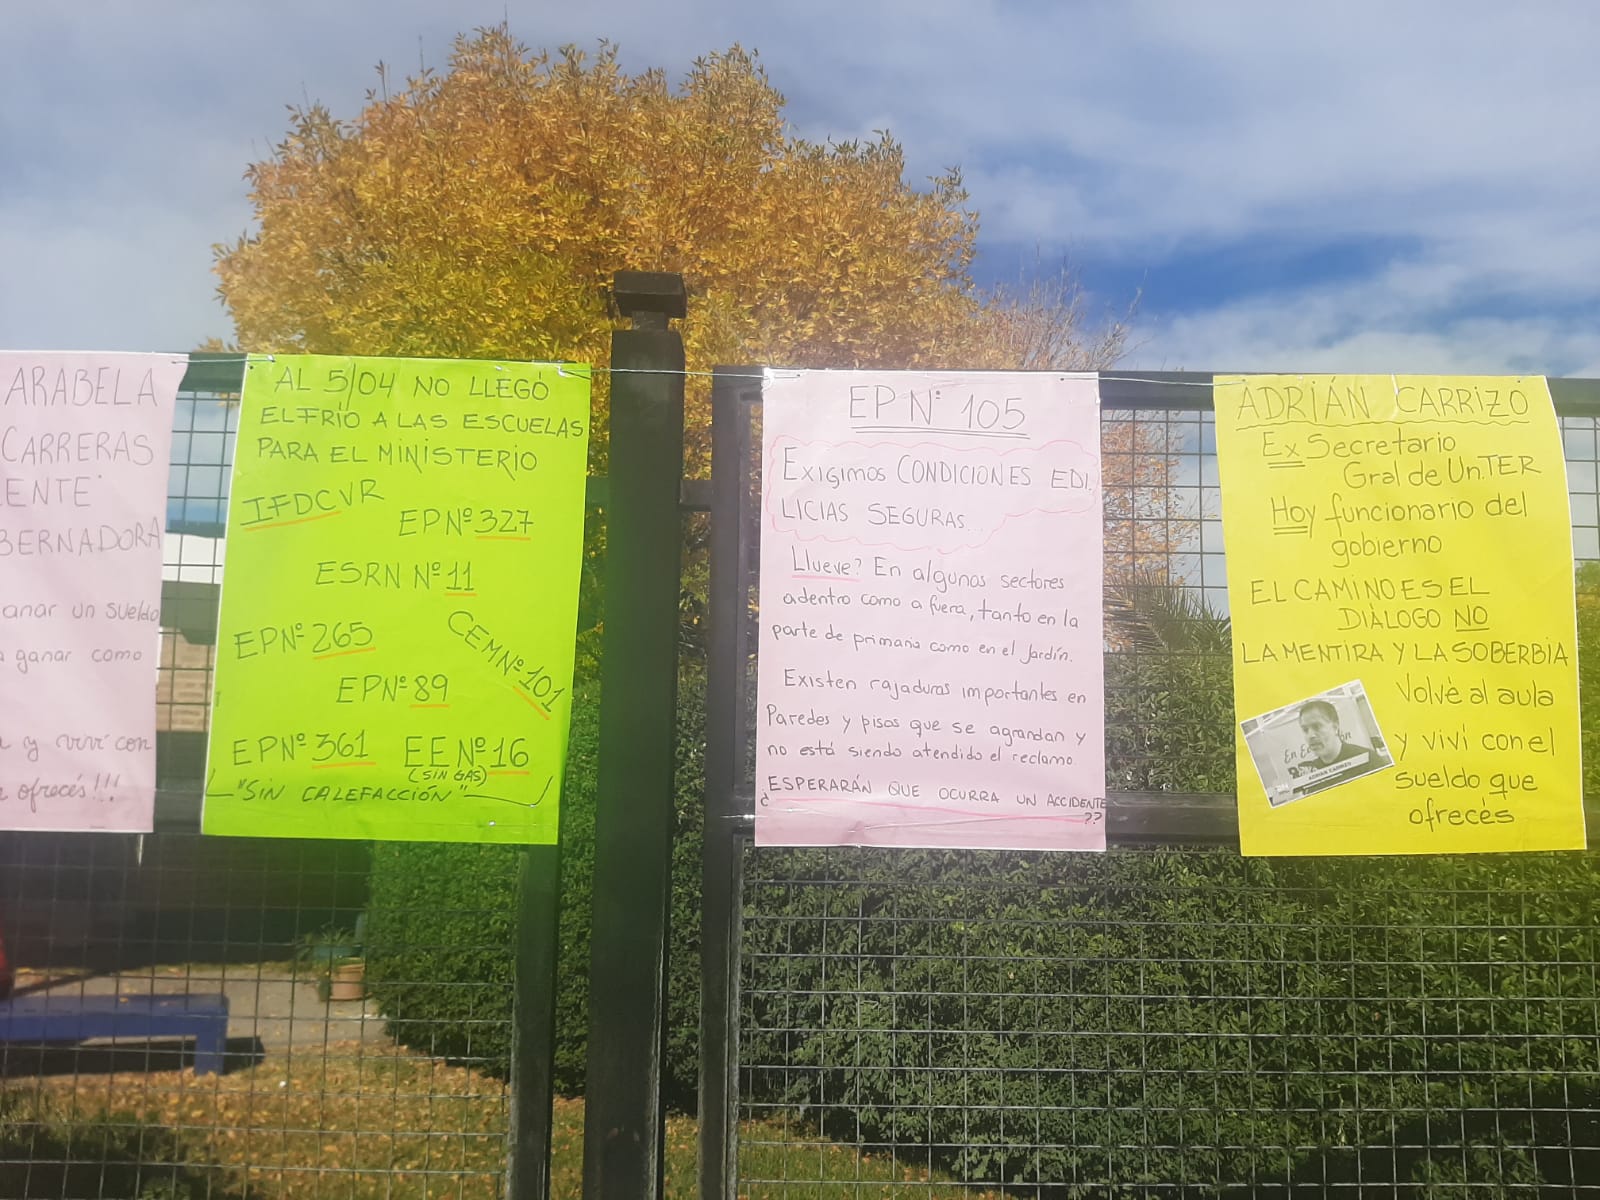 ARABELA
CARRERAS
ENTE"
BERNADORA
anar un sueldo
ganar como
y viví con
ofrecés!!!
AL 5/04 NO LLEGÓ
EL FRÍO A LAS ESCUELAS
PARA EL MINISTERIO
IFDCVR
EP Nº 327
ESRN Nº 11
EP Nº 265
CEM Nº 101
EP Nº 89
EP Nº 361
EE Nº 16
(SIN GAS)
"SIN CALEFACCIÓN"
EP Nº 105
EXIGIMOS CONDICIONES EDI.
LICIAS SEGURAS...
Llueve? En algunos sectores
adentro como afuera, tanto en la
parte de primaria como en el Jardín.
Existen rajaduras importantes en
Paredes y pisos que se agrandan y
no está siendo atendido el reclamo.
¿ESPERARÁN QUE OCURRA UN ACCIDENTE
??
ADRIÁN CARRIZO
Ex Secretario
Gral de Un.TER
Hoy funcionario del
gobierno
EL CAMINO ES EL
DIÁLOGO NO
LA MENTIRA Y LA SOBERBIA
Volvé al aula
y viví con el
sueldo que
ofrecés
ADRIÁN CARRIZO